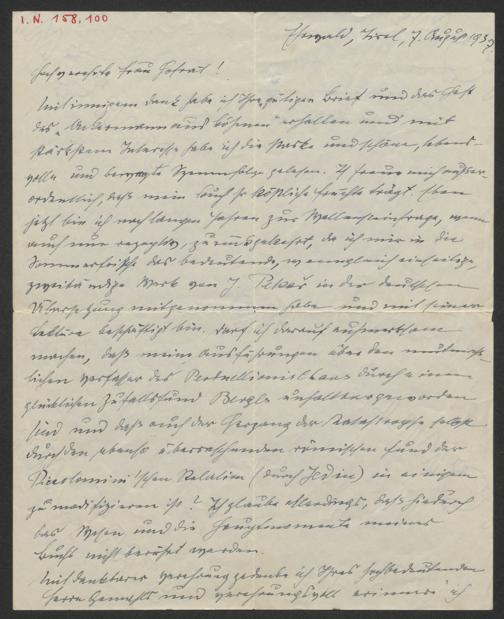 I.N. 158.100
Ehrwald, Tirol, 7. August 1937.
Hochverehrte Frau Hofrat!
Mit innigem Dank habe ich Ihren gütigen Brief und das Heft
des „Ackermann aus Böhmen“ erhalten und mit
stärkstem Interesse habe ich die starke und schöne, lebens-
volle und bewegte Szenenfolge gelesen. Ich freue mich außer-
ordentlich, daß mein Buch so köstliche Früchte trägt. Eben
jetzt bin ich nach langen Jahren zur Wallensteinfrage, wenn
auch nur rezeptiv, zurückgekehrt, da ich mir in die
Sommerfrische das bedeutende, wenngleich einseitige,
zweibändige Werk von J. Pekař in der deutschen
Übersetzung mitgenommen habe und mit seiner
Lektüre beschäftigt bin. Darf ich darauf aufmerksam
machen, daß meine Ausführungen über den mutmaß-
lichen Verfasser des durch einen
glücklichen Zufallsfund unhaltbar geworden
sind und daß auch der Hergang der Katastrophe selbst
durch den ebenso überraschenden römischen Fund der
Piccolomini'schen Relation (durch Jedin) in einigem
zu modifizieren ist? Ich glaube allerdings, daß hiedurch
das Wesen und die Hauptmomente meines
Buchs nicht berührt werden.
Mit dankbarer Verehrung gedenke ich Ihres hochbedeutenden
Herrn Gemahls und verehrungsvoll erinnere ich